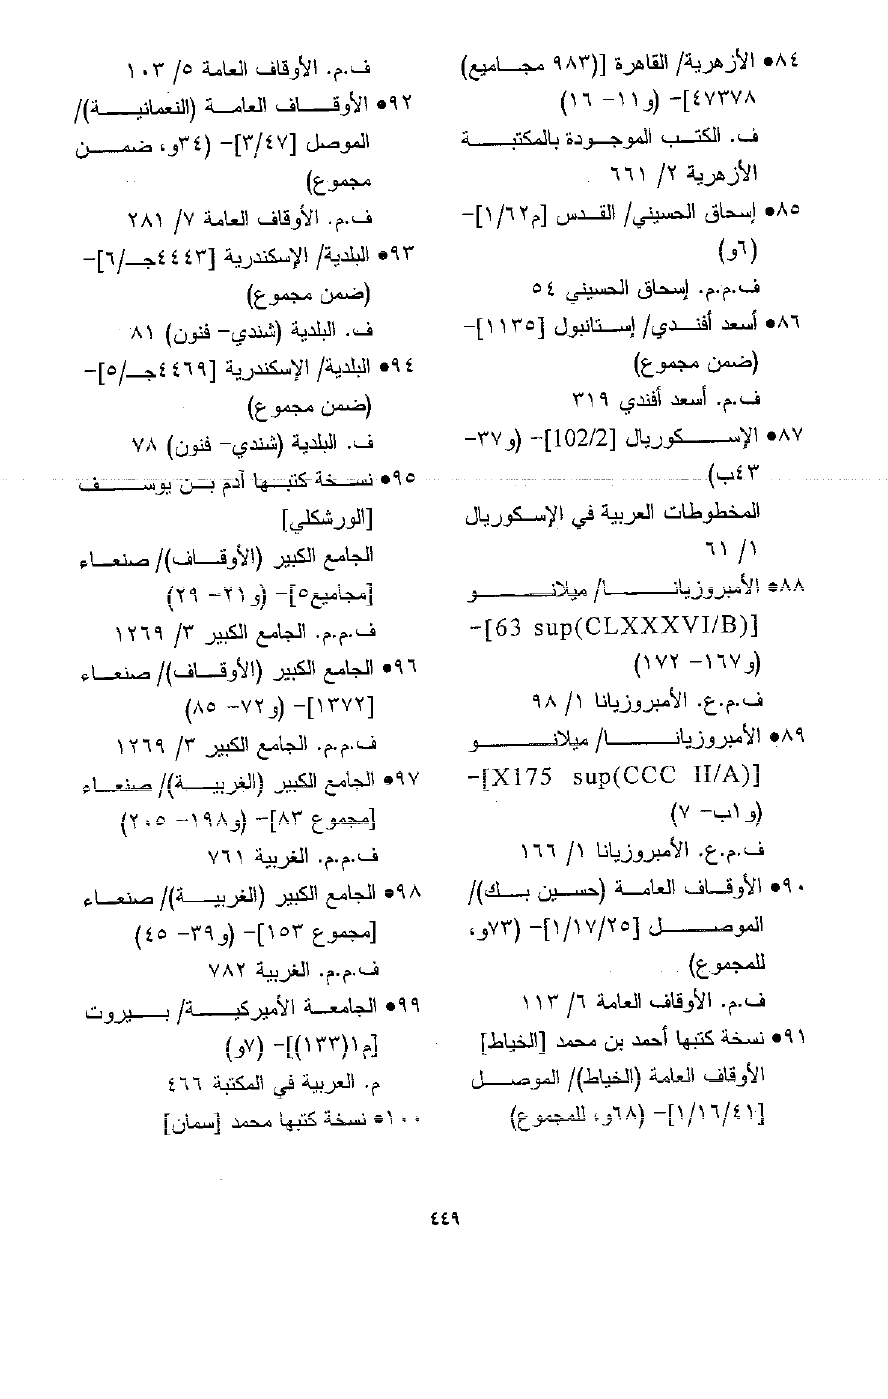 ٨٤• الأزهرية/ القاهرة [(٩٨٣ مجـاميع)
٤٧٣٧٨]- (و١١- ١٦)
ف. الكتـب الموجـودة بالمكتبـة
الأزهرية ٢/ ٦٦١
٨٥• إسحاق الحسيني/ القـدس [م١/٦٢]-
(٦و)
ف.م.م. إسحاق الحسيني ٥٤
٨٦• أسعد أفنـدي/ إستانبول [١١٣٥]-
(ضمن مجموع)
ف.م. أسعد أفندي ٣١٩
٨٧• الإسـكوريال [102/2]- (و٣٧-
٤٣ب)
المخطوطات العربية في الإسكوريال
١/ ٦١
٨٨• الأمبروزيانـا/ ميلانـو
[63 sup(CLXXXVI/B)]-
(و١٦٧- ١٧٢)
ف.م.ع. الأمبروزيانا ١/ ٩٨
٨٩• الأمبروزيانـا/ ميلانـو
[X175 sup(CCC II/A)]-
(و١ب- ٧)
ف.م.ع. الأمبروزيانا ١/ ١٦٦
٩٠• الأوقـاف العامـة (حسين بـك)/
الموصـل [١/١٧/٢٥]- (٧٣و،
للمجموع)
ف.م. الأوقاف العامة ٦/ ١١٣
٩١• نسخة كتبها أحمد بن محمد [الخياط]
الأوقاف العامة (الخياط)/ الموصـل
[١/١٦/٤١]- (٦٨و، للمجموع)
ف.م. الأوقاف العامة ٥/ ١٠٣
٩٢• الأوقـاف العامـة (النعمانيـة)/
الموصل [٣/٤٧]- (٣٤و، ضمـن
مجموع)
ف.م. الأوقاف العامة ٧/ ٢٨١
٩٣• البلدية/ الإسكندرية [٤٤٤٣جـ/٦]-
(ضمن مجموع)
ف. البلدية (شندي- فنون) ٨١
٩٤• البلدية/ الإسكندرية [٤٤٦٩جـ/٥]-
(ضمن مجموع)
ف. البلدية (شندي- فنون) ٧٨
٩٥• نسـخة كتبـها آدم بـن يوسـف
[الورشكلي]
الجامع الكبير (الأوقـاف)/ صنعاء
[مجاميع٥]- (و٢١- ٢٩)
ف.م.م. الجامع الكبير ٣/ ١٢٦٩
٩٦• الجامع الكبير (الأوقـاف)/ صنعـاء
[١٣٧٢]- (و٧٢- ٨٥)
ف.م.م. الجامع الكبير ٣/ ١٢٦٩
٩٧• الجامع الكبير (الغربيـة)/ صنعـاء
[مجموع ٨٣]- (و١٩٨- ٢٠٥)
ف.م.م. الغربية ٧٦١
٩٨• الجامع الكبير (الغربيـة)/ صنعاء
[مجموع ١٥٣]- (و٣٩- ٤٥)
ف.م.م. الغربية ٧٨٢
٩٩• الجامعـة الأميركيـة/ بـيروت
[م١(١٣٣)]- (٧و)
م. العربية في المكتبة ٤٦٦
١٠٠• نسخة كتبها محمد [سمان]
٤٤٩